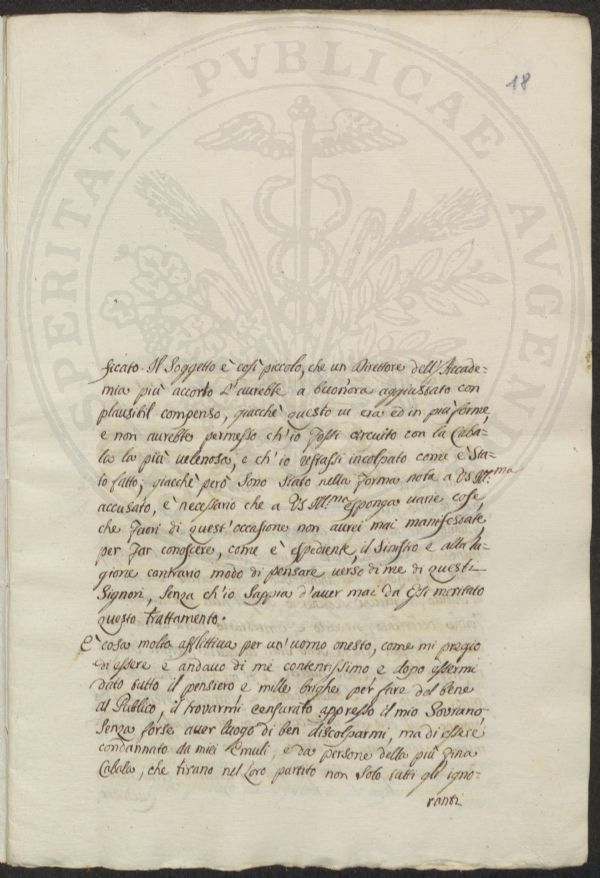 18
PROSPERITATI PVBLICAE AVGENDAE
ficato. Il Soggetto è così piccolo, che un Direttore dell'Accade-
mia più accorto l'aurebbe a buon'ora aggiustato con
plausibil compenso, giacchè questo vi era ed in più forme,
e non aurebbe permesso ch'io fossi circuito con la Caba-
la la più velenosa, e ch'io restassi incolpato come è Sta-
to fatto; giacchè però sono stato nella forma nota a VS Ill.ma
accusato, è necessario che a VS Ill.ma esponga varie cose,
che fuori di quest'occasione non aurei mai manifestate,
per far conoscere, come è espediente, il Sinistro e alla Ra-
gione contrario modo di pensare verso di me di questi
Signori, senza ch'io Sappia d'auer mai da Essi meritato
questo trattamento.
È cosa molto afflittiva per un'uomo onesto, come mi pregio
di essere e andauo di me contentissimo e dopo essermi
dato tutto il pensiero e mille brighe per fare del bene
al Publico, il trovarmi censurato appresso il mio Sovrano,
senza forse auer luogo di ben discolparmi, ma di essere
condannato da miei Emuli, e da persone della più fina
Cabala, che tirano nel loro partito non solo tutti gli igno-
ranti